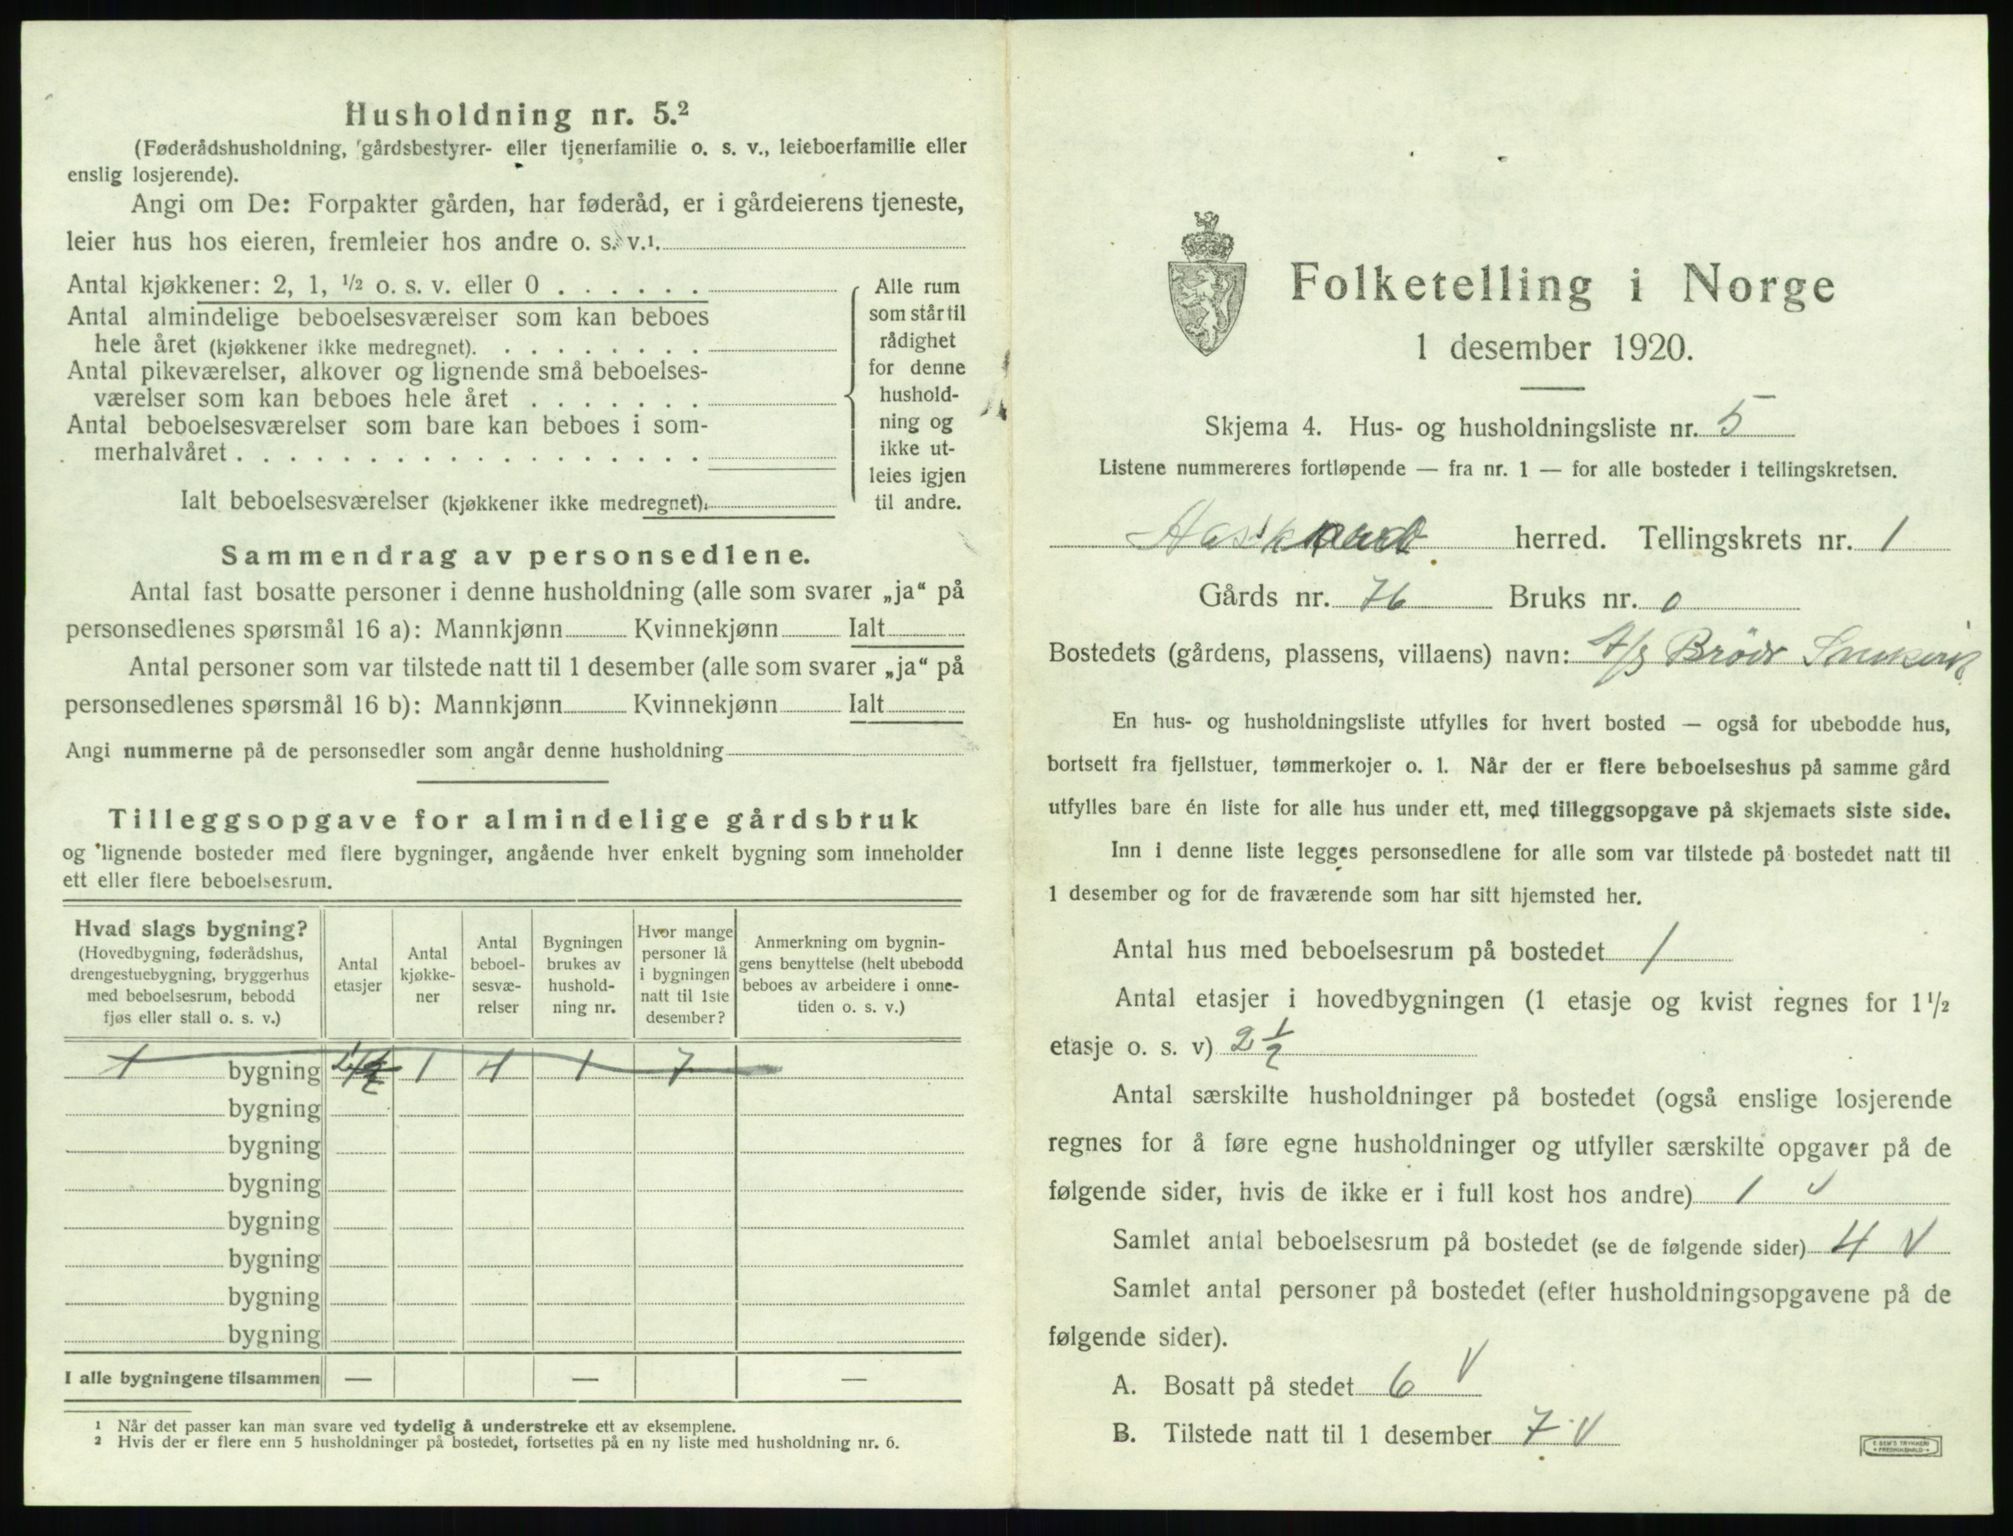 Husholdning nr. 5.²
(Føderådshusholdning, gårdsbestyrer- eller tjenerfamilie o. s. v., leieboerfamilie eller
enslig losjerende).
Angi om De: Forpakter gården, har føderåd, er i gårdeierens tjeneste,
leier hus hos eieren, fremleier hos andre o. s. v.¹.
Antal kjøkkener: 2, 1, ½ o. s. v. eller 0 . . . . . .
Antal almindelige beboelsesværelser som kan beboes
hele året (kjøkkener ikke medregnet). . . . . . . . .
Antal pikeværelser, alkover og lignende små beboelses-
værelser som kan beboes hele året . . . . . . .
Antal beboelsesværelser som bare kan beboes i som-
merhalvåret . . . . . . . . . . . . . . . . . .
Ialt beboelsesværelser (kjøkkener ikke medregnet).
Alle rum
som står til
rådighet
for denne
hushold-
ning og
ikke ut-
leies igjen
til andre.
Sammendrag av personsedlene.
Antal fast bosatte personer i denne husholdning (alle som svarer „ja“ på
personsedlenes spørsmål 16 a): Mannkjønn Kvinnekjønn Ialt
Antal personer som var tilstede natt til 1 desember (alle som svarer „ja“ på
personsedlenes spørsmål 16 b): Mannkjønn Kvinnekjønn Ialt
Angi nummerne på de personsedler som angår denne husholdning
Tilleggsopgave for almindelige gårdsbruk
og lignende bosteder med flere bygninger, angående hver enkelt bygning som inneholder
ett eller flere beboelsesrum.
Hvad slags bygning?
(Hovedbygning, føderådshus,
drengestuebygning, bryggerhus
med beboelsesrum, bebodd
fjøs eller stall o. s. v.)
Antal
etasjer
Antal
kjøkke-
ner
Antal
beboel-
sesvæ-
relser
Bygningen
brukes av
hushold-
ning nr.
Hvor mange
personer lå
i bygningen
natt til 1ste
desember?
Anmerkning om bygnin-
gens benyttelse (helt ubebodd
beboes av arbeidere i onne-
tiden o. s. v.)
1 bygning 1 4 1 7
bygning
bygning
bygning
bygning
bygning
bygning
bygning
I alle bygningene tilsammen — — —
¹ Når det passer kan man svare ved tydelig å understreke ett av eksemplene.
² Hvis der er flere enn 5 husholdninger på bostedet, fortsettes på en ny liste med husholdning nr. 6.
Folketelling i Norge
1 desember 1920.
Skjema 4. Hus- og husholdningsliste nr. 5
Listene nummereres fortløpende — fra nr. 1 — for alle bosteder i tellingskretsen.
herred. Tellingskrets nr. 1
Gårds nr. 76 Bruks nr. 0
Bostedets (gårdens, plassens, villaens) navn: A/S Brødr
En hus- og husholdningsliste utfylles for hvert bosted — også for ubebodde hus,
bortsett fra fjellstuer, tømmerkojer o. l. Når der er flere beboelseshus på samme gård
utfylles bare én liste for alle hus under ett, med tilleggsopgave på skjemaets siste side.
Inn i denne liste legges personsedlene for alle som var tilstede på bostedet natt til
1 desember og for de fraværende som har sitt hjemsted her.
Antal hus med beboelsesrum på bostedet 1
Antal etasjer i hovedbygningen (1 etasje og kvist regnes for 1½
etasje o. s. v) 2½
Antal særskilte husholdninger på bostedet (også enslige losjerende
regnes for å føre egne husholdninger og utfyller særskilte opgaver på de
følgende sider, hvis de ikke er i full kost hos andre) 1 v
Samlet antal beboelsesrum på bostedet (se de følgende sider) 4 v
Samlet antal personer på bostedet (efter husholdningsopgavene på de
følgende sider).
A. Bosatt på stedet 6 v
B. Tilstede natt til 1 desember 7 v
E. SEM'S TRYKKERI
FREDRIKSHALD